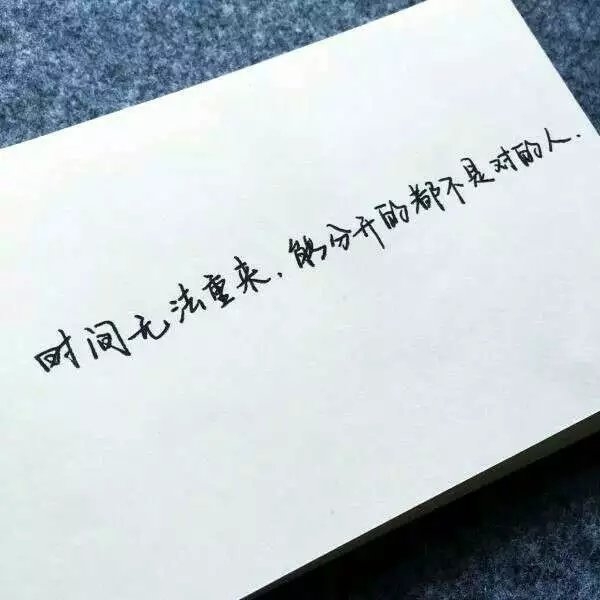 时间无法重来,能分开的都不是对的人.